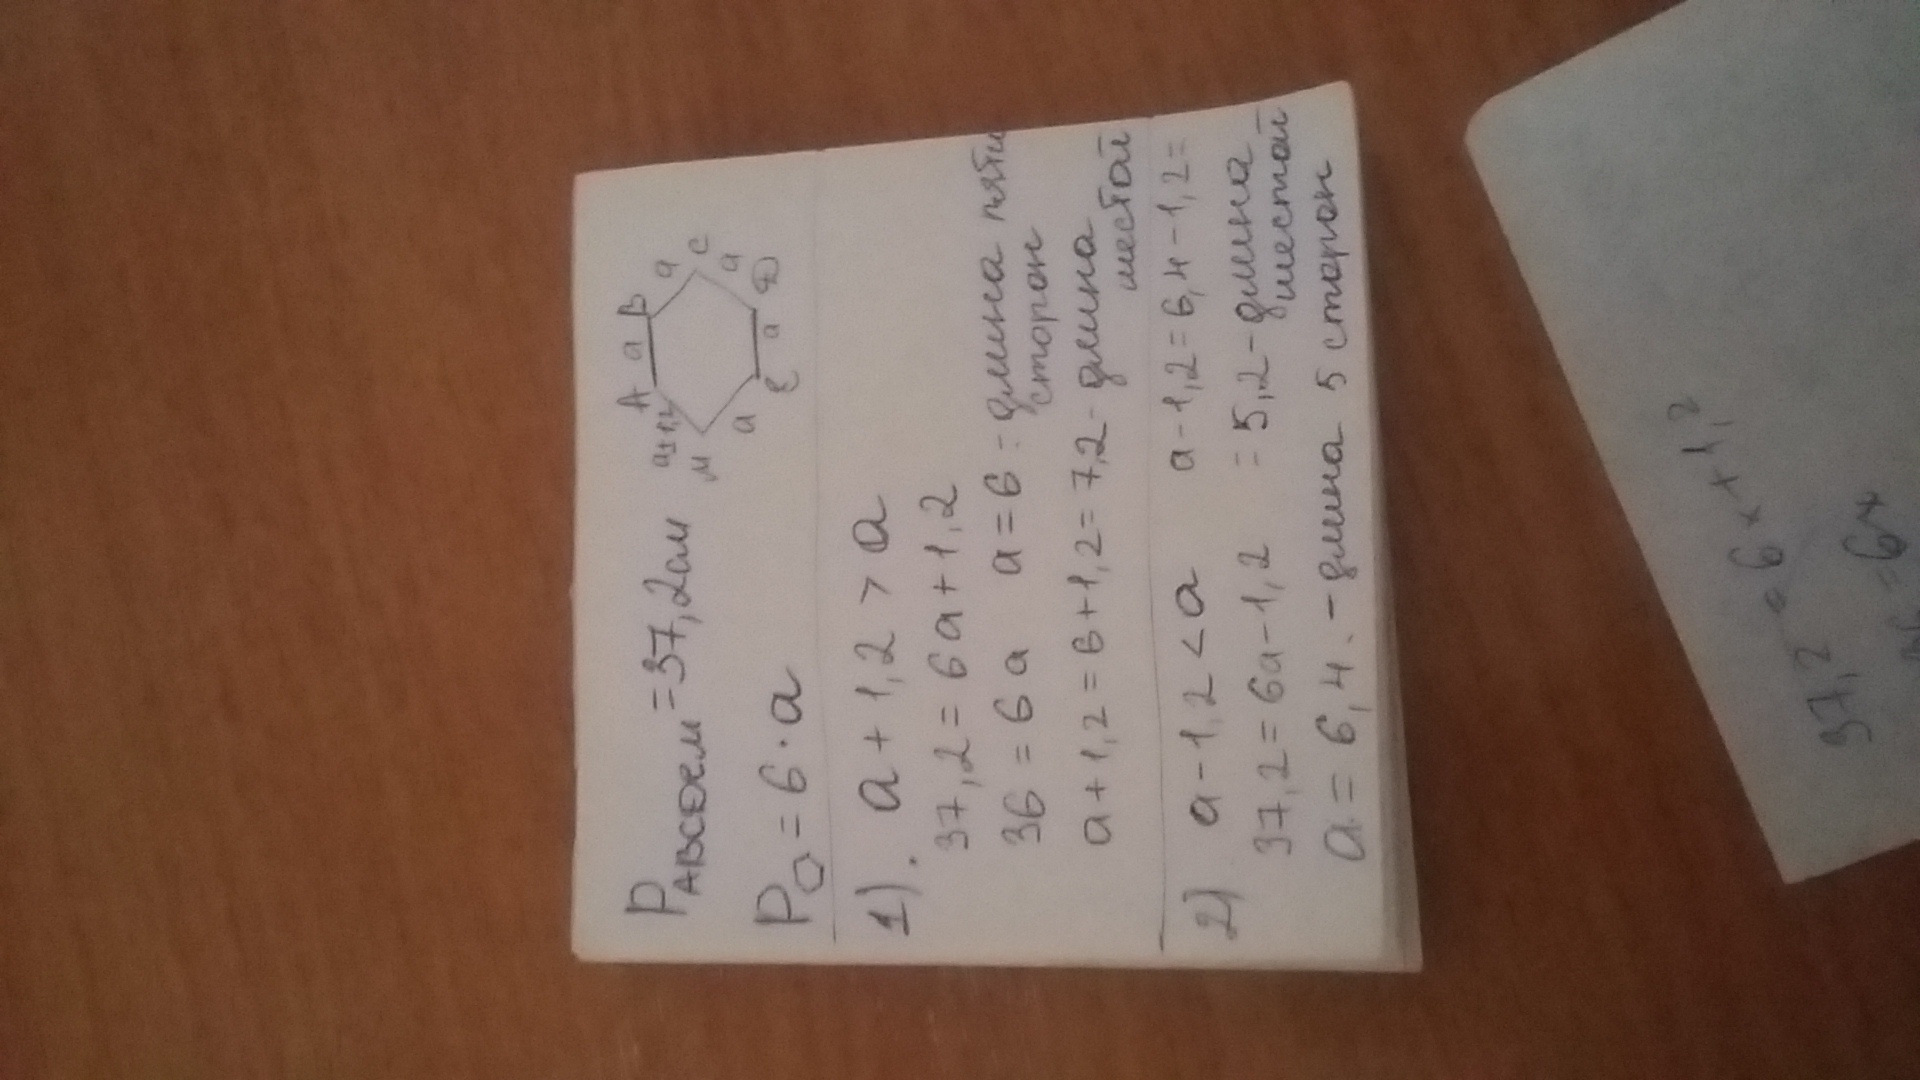 P ABCDEM = 37,2см
A a B a C a D a E a M a±1,2
P = 6 · a
1). a + 1,2 > a
37,2 = 6a + 1,2
36 = 6a a = 6 : длина пяти сторон
a + 1,2 = 6 + 1,2 = 7,2 - длина шестой
2) a - 1,2 < a a - 1,2 = 6,4 - 1,2 =
37,2 = 6a - 1,2 = 5,2 - длина шестой
a = 6,4. - длина 5 сторон
37,2 = 6x + 1,2
= 6x